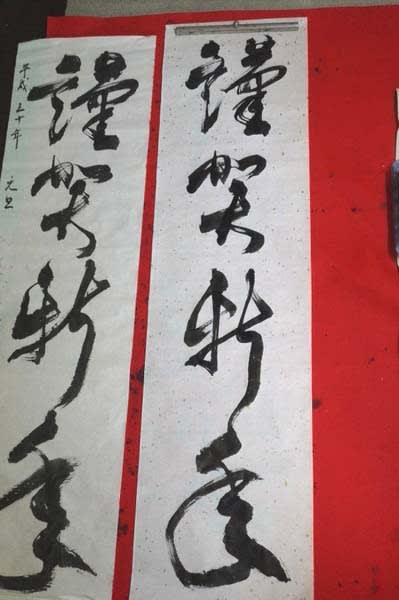 謹賀新年
謹賀新年
平成三十年 元旦